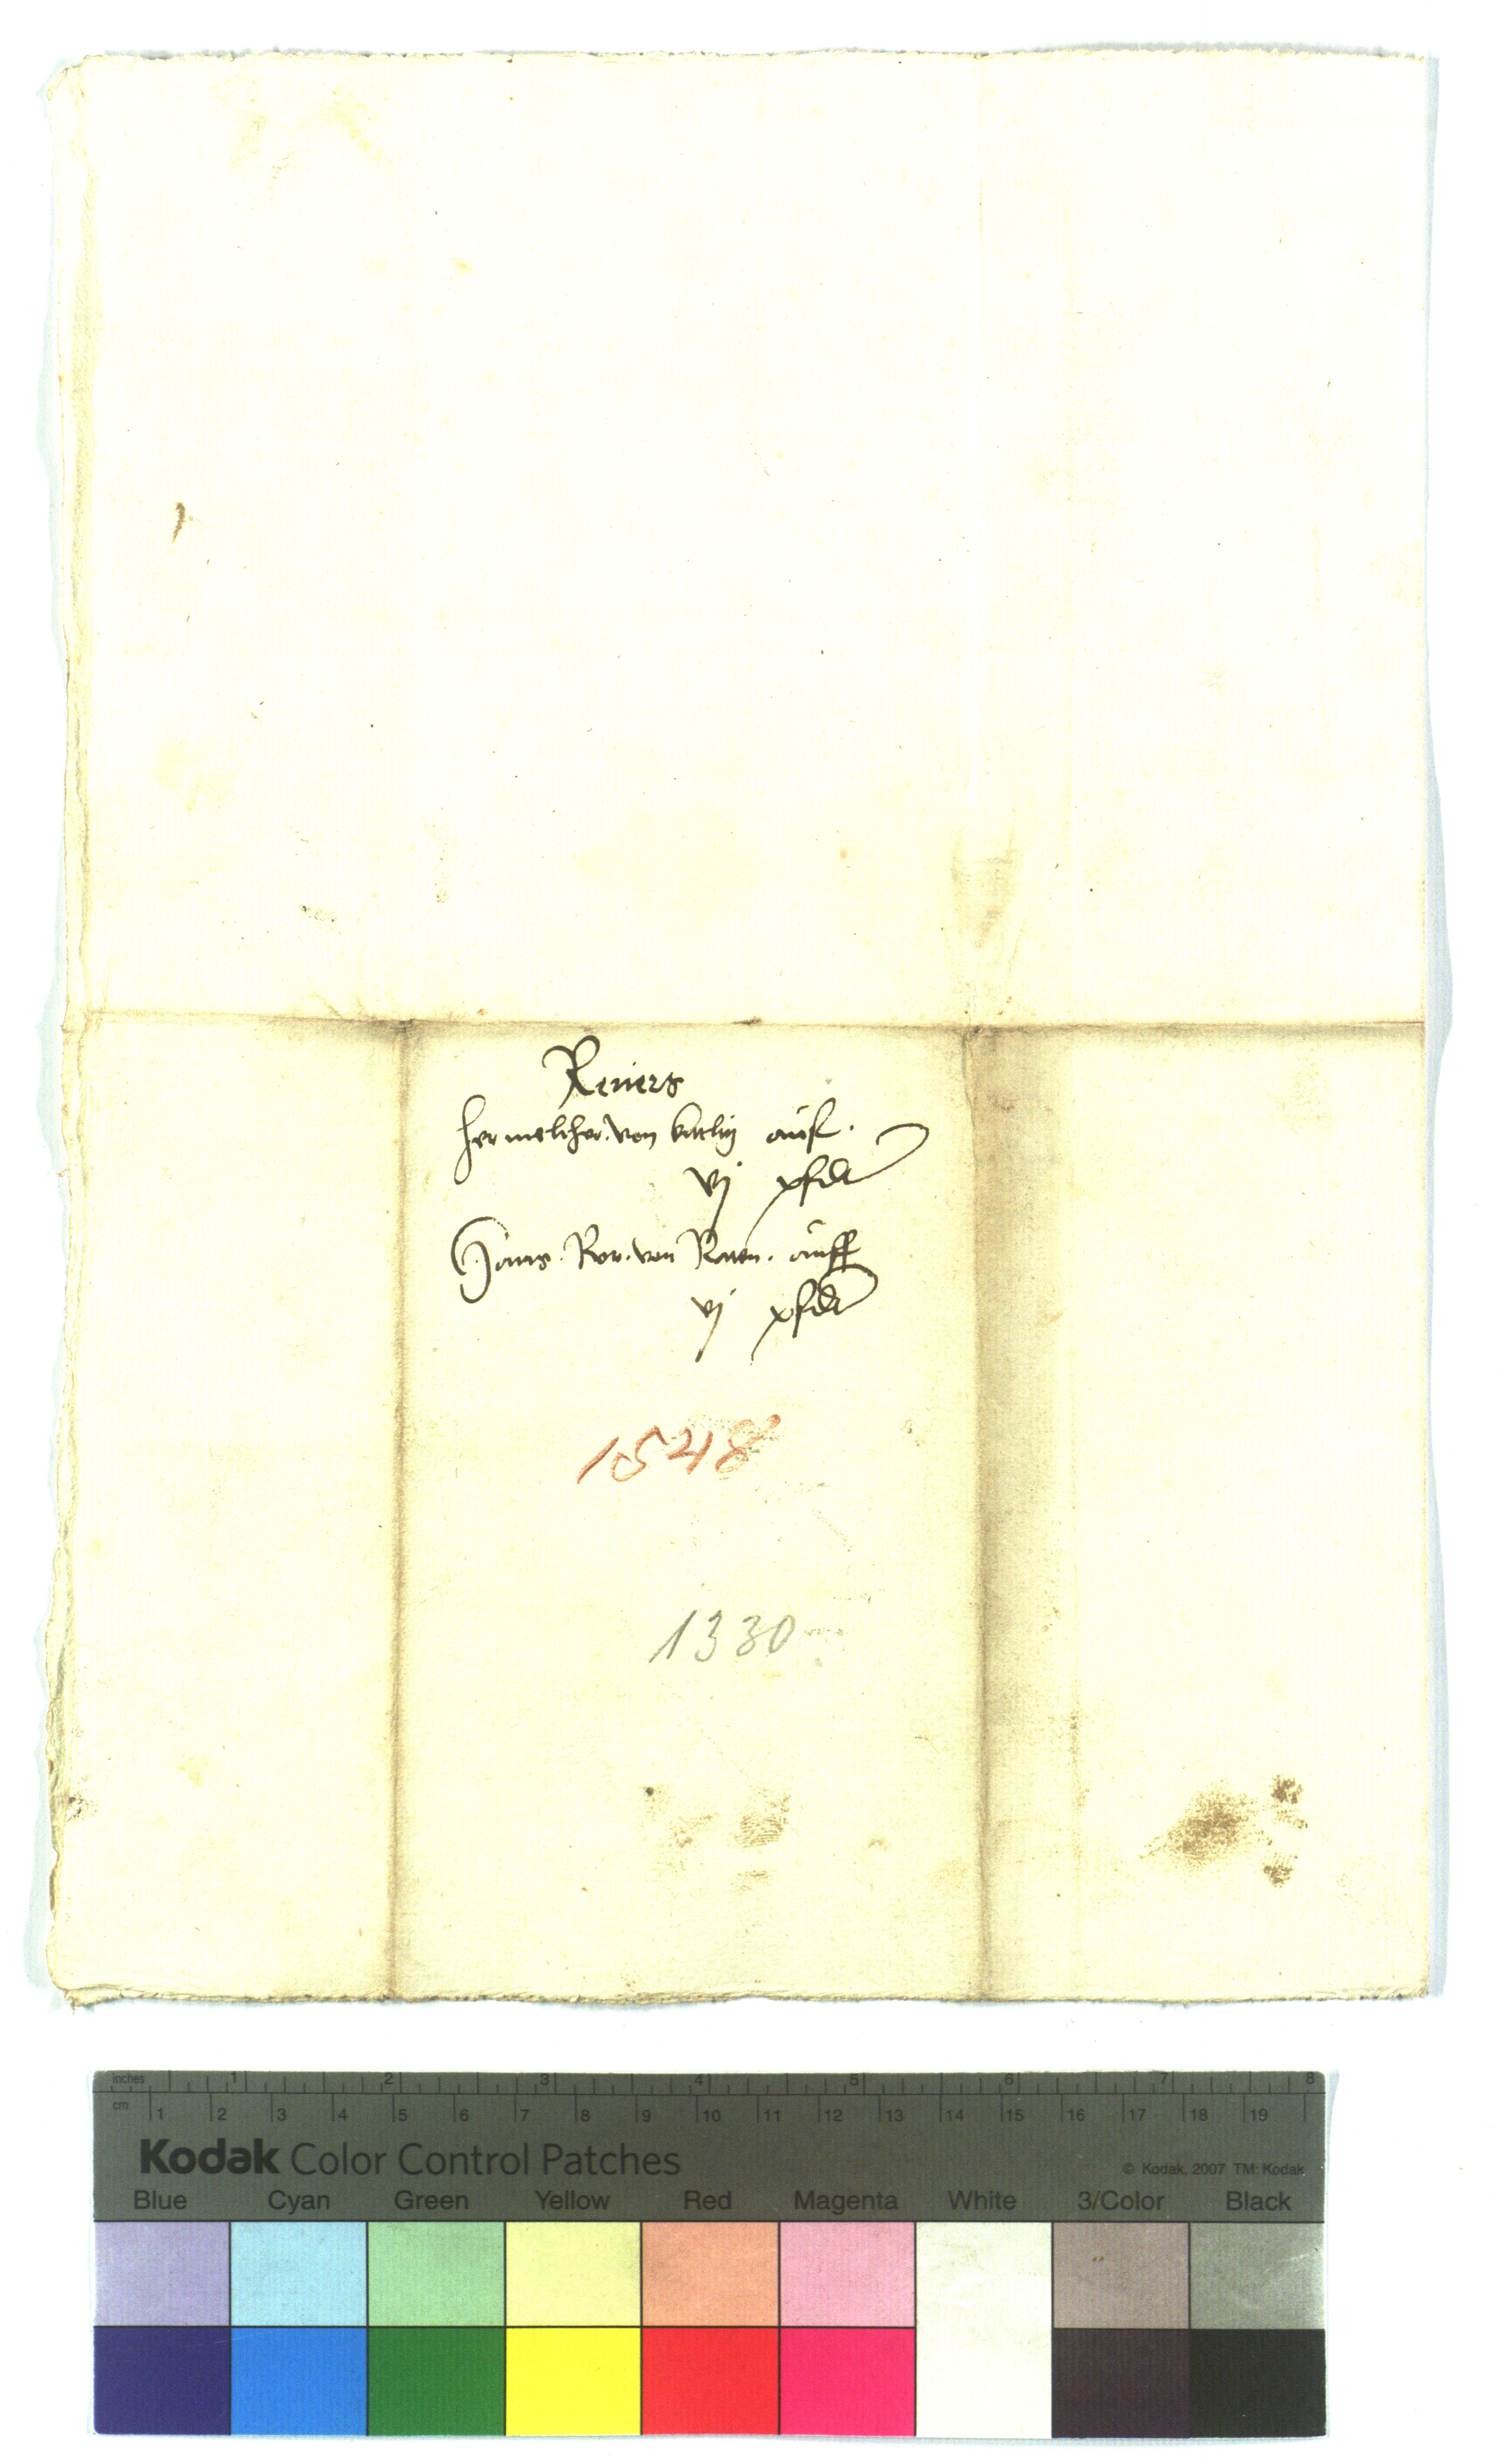 Reuers
her melcher von
auff
vj pferdt
Hans Ror von auff
vj pferdt
1548
1330
inches 1 2 3 4 5 6 7 8
cm 1 2 3 4 5 6 7 8 9 10 11 12 13 14 15 16 17 18 19
Kodak Color Control Patches
© Kodak, 2007 TM: Kodak
Blue Cyan Green Yellow Red Magenta White 3/Color Black